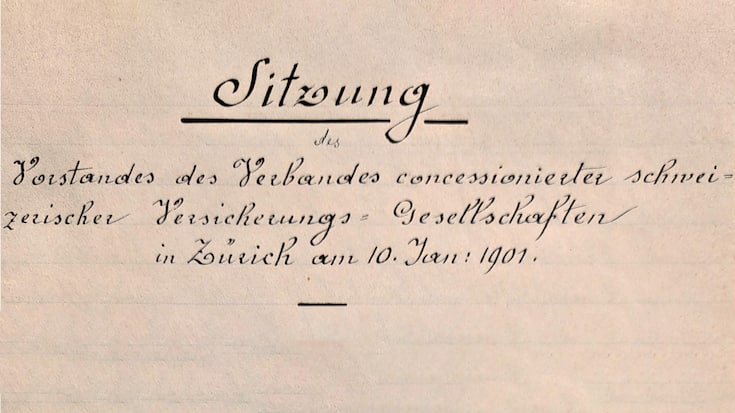 Sitzung
des
Vorstandes des Verbandes concessionierter schwei=
zerischer Versicherungs= Gesellschaften
in Zürich am 10. Jan: 1901.